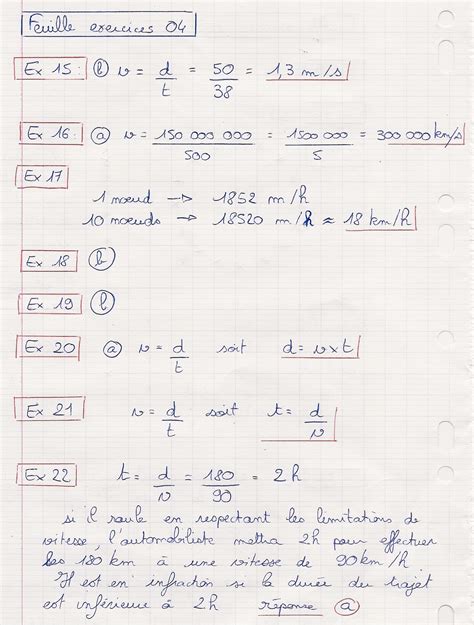 Feuille exercices 04
Ex 15: ⓑ v = d/t = 50/38 = 1,3 m/s
Ex 16: ⓐ v = 150 000 000/500 = 1500 000/5 = 300 000 km/s
Ex 17
1 noeud → 1852 m/h
10 noeuds → 18520 m/h ≈ 18 km/h
Ex 18 ⓑ
Ex 19 ⓑ
Ex 20 ⓐ v = d/t soit d = v×t
Ex 21 v = d/t soit t = d/v
Ex 22 t = d/v = 180/90 = 2h
si il roule en respectant les limitations de
vitesse, l'automobiliste mettra 2h pour effectuer
les 180 km à une vitesse de 90 km/h.
Il est en infraction si la durée du trajet
est inférieure à 2h réponse ⓐ